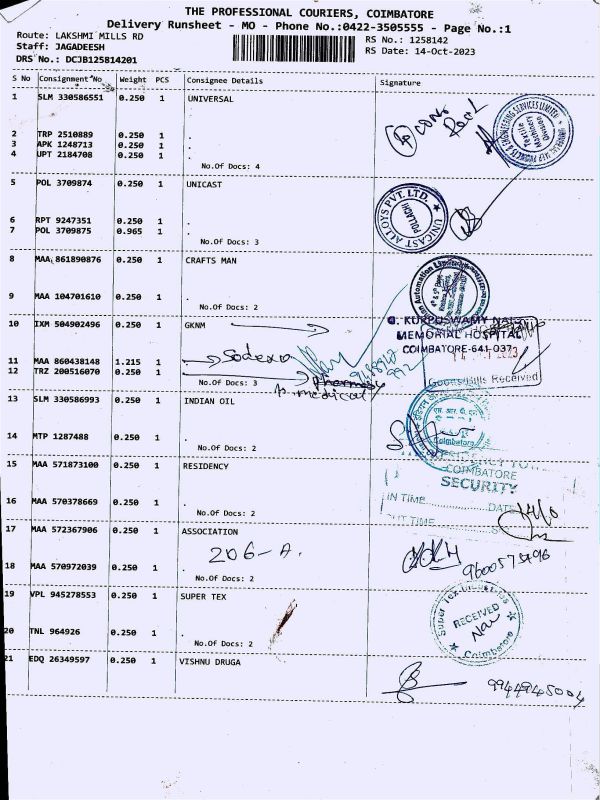 THE PROFESSIONAL COURIERS, COIMBATORE
Delivery Runsheet - MO - Phone No.:0422-3505555 - Page No.:1
Route: LAKSHMI MILLS RD
RS No.: 1258142
Staff: JAGADEESH
RS Date: 14-Oct-2023
DRS No.: DCJB125814201
S No Consignment No Weight PCS Consignee Details Signature
1 SLM 330586551 0.250 1 UNIVERSAL
2 TRP 2510889 0.250 1 .
3 APK 1248713 0.250 1 .
4 UPT 2184708 0.250 1 .
No.Of Docs: 4
5 POL 3709874 0.250 1 UNICAST
UNICAST ALLOYS PVT. LTD.
POLLACHI
6 RPT 9247351 0.250 1 .
7 POL 3709875 0.965 1 .
No.Of Docs: 3
8 MAA 861890876 0.250 1 CRAFTS MAN
9 MAA 104701610 0.250 1 .
No.Of Docs: 2
10 IXM 504902496 0.250 1 GKNM
G. KUPPUSWAMY NAIDU
MEMORIAL HOSPITAL
COIMBATORE-641 037
11 MAA 860438148 1.215 1 . Sodexo
12 TRZ 200516070 0.250 1 . Pharmacy
Goods/Bills Received
No.Of Docs: 3 medical
13 SLM 330586993 0.250 1 INDIAN OIL
Coimbatore
14 MTP 1287488 0.250 1 .
No.Of Docs: 2
15 MAA 571873100 0.250 1 RESIDENCY
COIMBATORE
SECURITY
16 MAA 570378669 0.250 1 .
IN TIME DATE
OUT TIME
No.Of Docs: 2
17 MAA 572367906 0.250 1 ASSOCIATION
206-A.
18 MAA 570972039 0.250 1 .
No.Of Docs: 2
19 VPL 945278553 0.250 1 SUPER TEX
RECEIVED
Coimbatore
20 TNL 964926 0.250 1 .
No.Of Docs: 2
21 EDQ 26349597 0.250 1 VISHNU DRUGA
9944945004